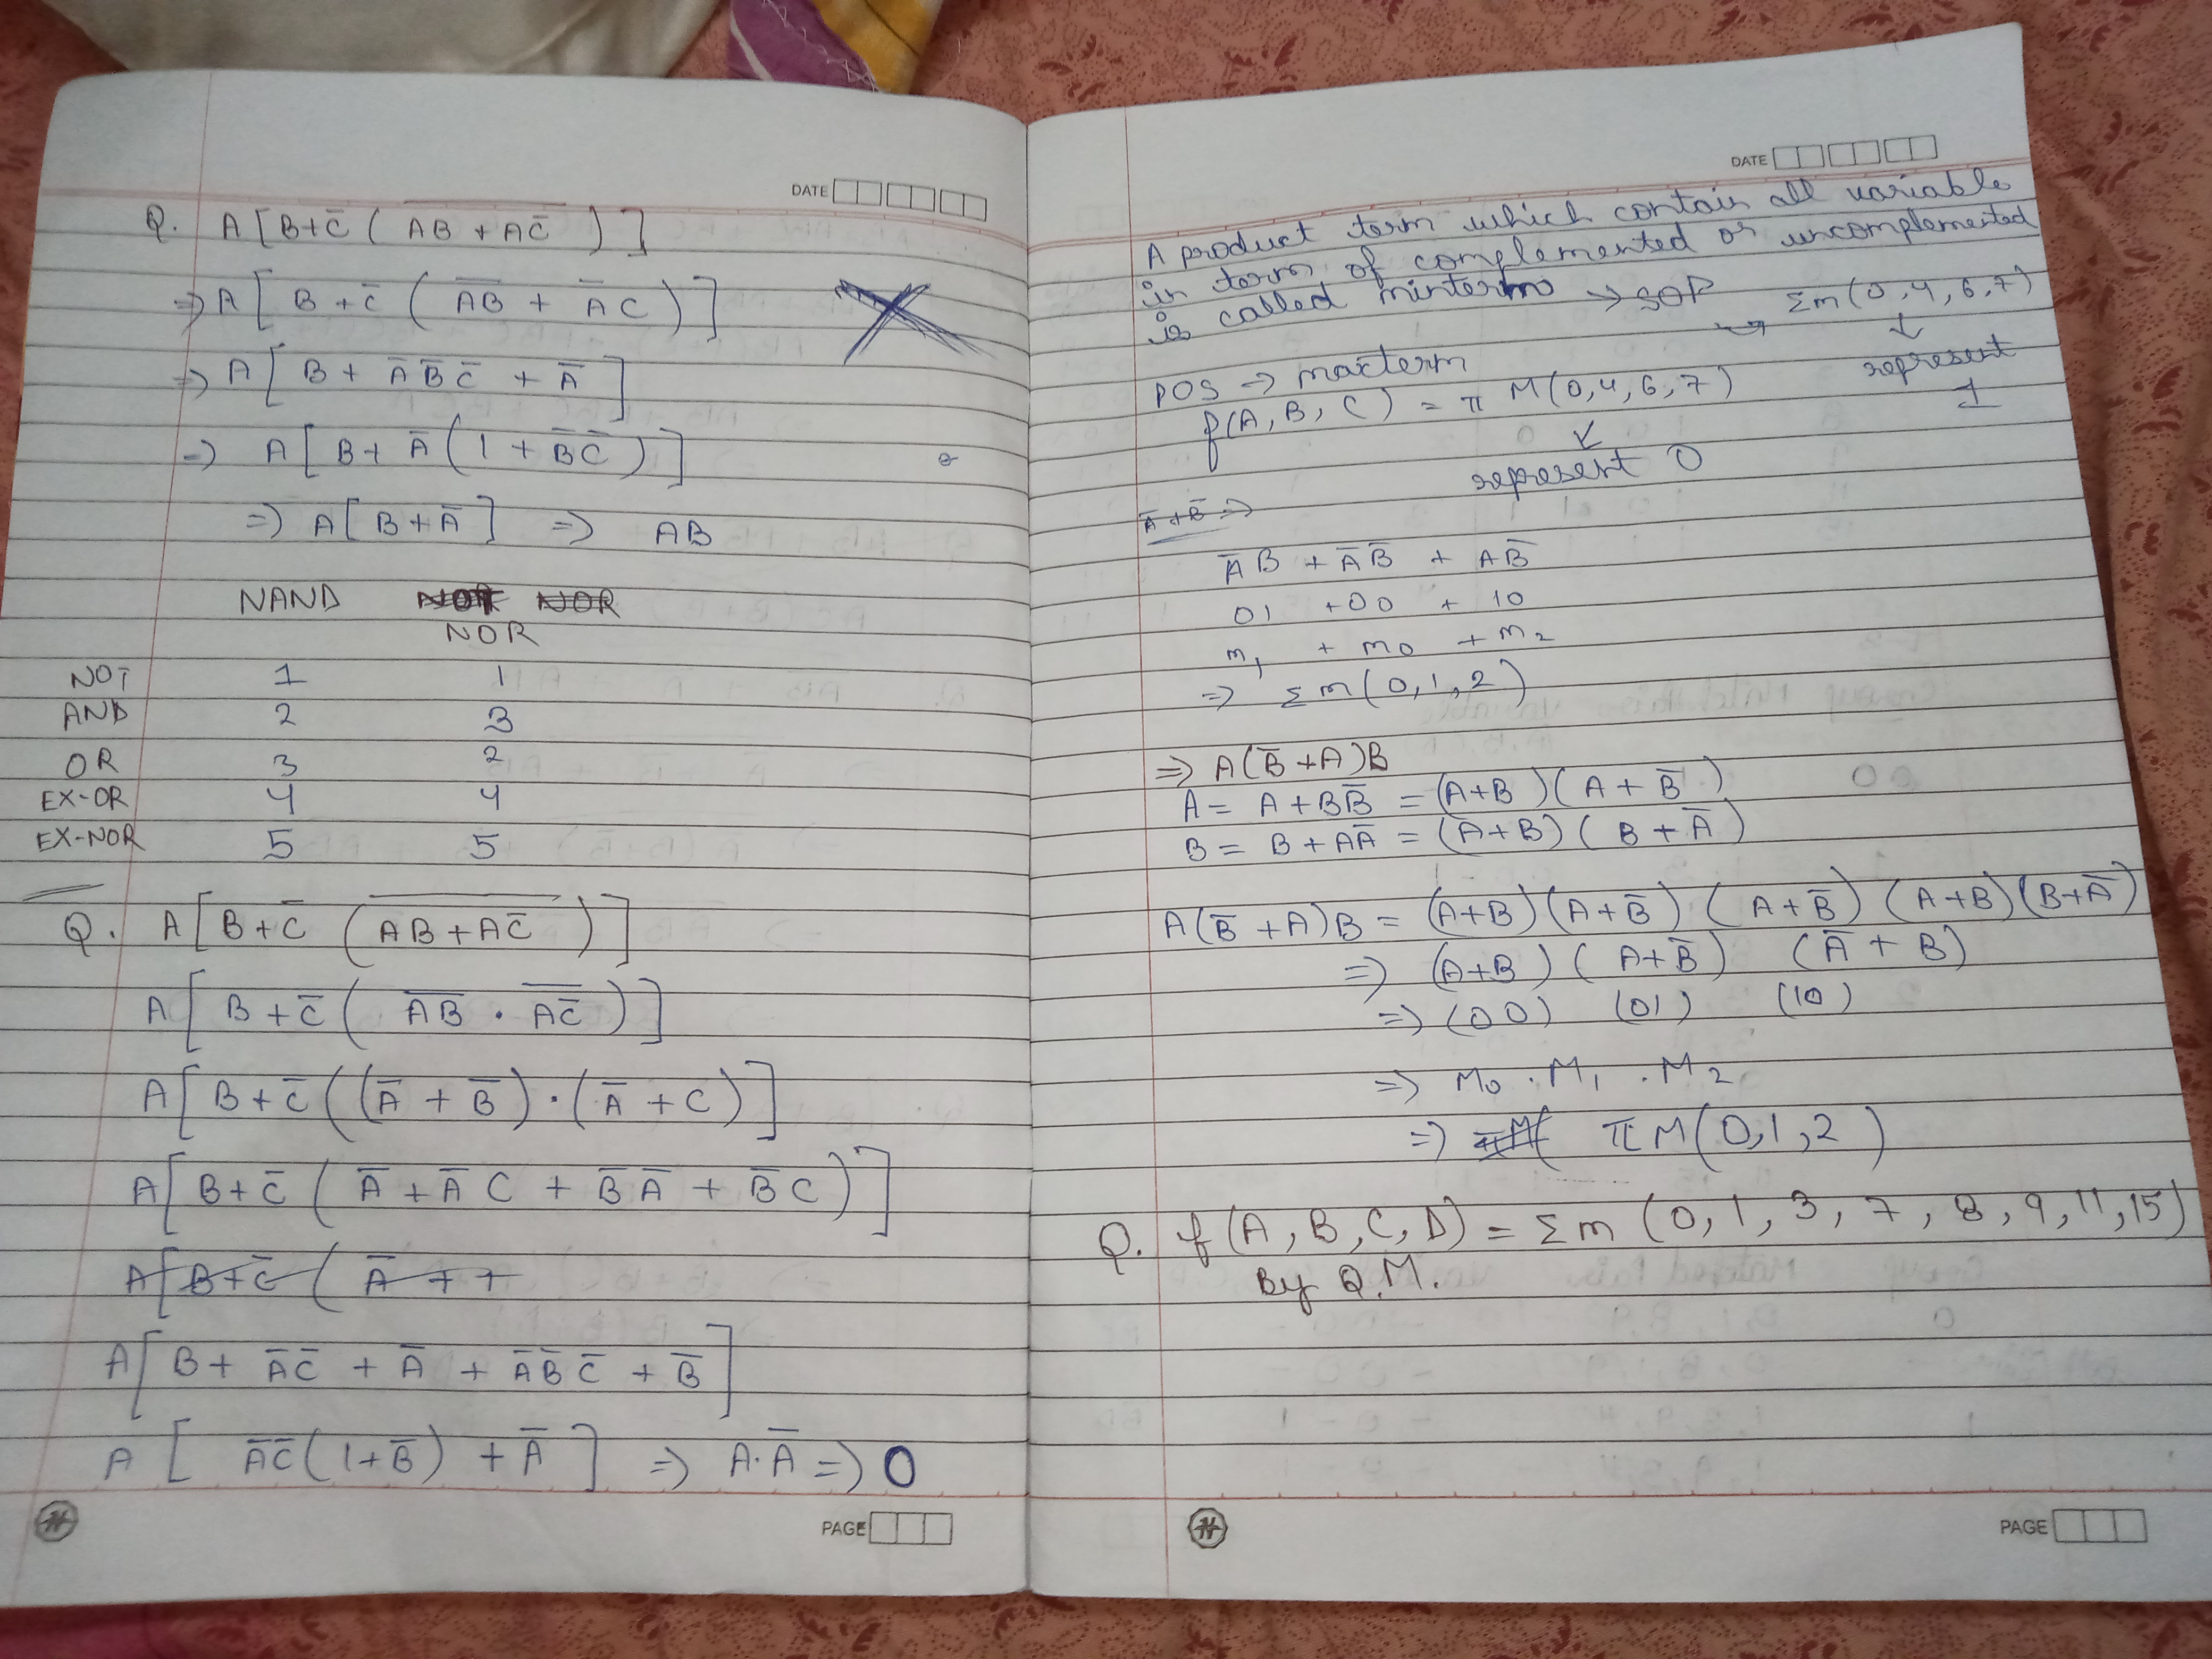 DATE
Q. A [B+C̅ ( \overline{AB + AC̅} )]
⇒ A [ B + C̅ ( \overline{AB} + A̅ C ) ]
⇒ A [ B + A̅ B̅ C̅ + A̅ ]
⇒ A [ B + A̅ ( 1 + B̅ C̅ ) ]
⇒ A [ B + A̅ ] ⇒ AB
NAND NOR
NOR
NOT 1 1
AND 2 3
OR 3 2
EX-OR 4 4
EX-NOR 5 5
Q. A [ B+C̅ ( \overline{AB+AC̅} ) ]
A [ B + C̅ ( \overline{AB} . \overline{AC̅} ) ]
A [ B+C̅ ( (A̅ + B̅) . (A̅ + C) ) ]
A [ B+C̅ ( A̅ + A̅ C + B̅ A̅ + B̅ C ) ]
A [ B+C̅ ( A̅ + +
A [ B + A̅ C̅ + A̅ + A̅ B̅ C̅ + B̅ ]
A [ A̅ C̅ (1+B̅) + A̅ ] ⇒ A.A̅ ⇒ 0
PAGE
DATE
A product term which contain all variable
in term of complemented or uncomplemented
is called minterm → SOP → Σm (0,4,6,7)
↓
represent
1
POS → maxterm
f(A, B, C) = π M(0,4,6,7)
↙
represent 0
A̅ + B̅ ⇒
A̅ B + A̅ B̅ + A B̅
01 + 00 + 10
m1 + m0 + m2
⇒ Σ m (0,1,2)
⇒ A(B̅ + A)B
A = A + BB̅ = (A+B) (A + B̅)
B = B + AA̅ = (A+B) (B + A̅)
A(B̅ + A)B = (A+B) (A+B̅) (A+B̅) (A+B) (B+A̅)
⇒ (A+B) (A+B̅) (A̅ + B)
⇒ (00) (01) (10)
⇒ M0 . M1 . M2
⇒ πM( π M (0,1,2)
Q. f (A, B, C, D) = Σ m (0, 1, 3, 7, 8, 9, 11, 15)
By Q.M.
PAGE